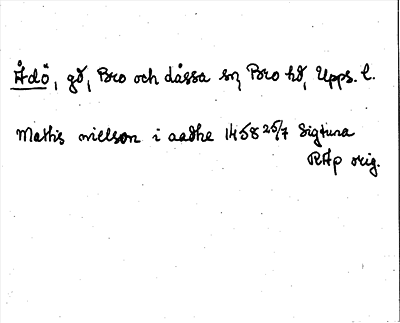 Ådö, gd, Bro och Låssa sn, Bro hd, Upps. l.
Mathis nielson i aadhe 1458 25/7 Sigtuna
RAp orig.